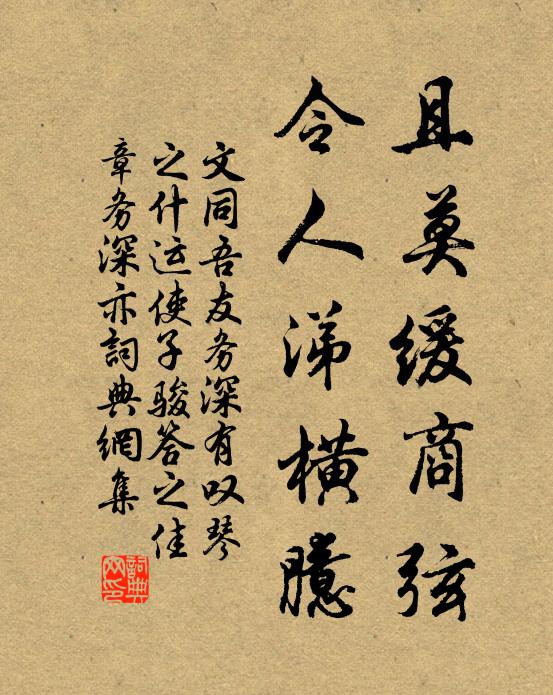 且莫缓商弦
令人涕横臆
文同吾友务深有叹琴
之什运使子骏答之佳
章务深亦詞典網集
詞典网印